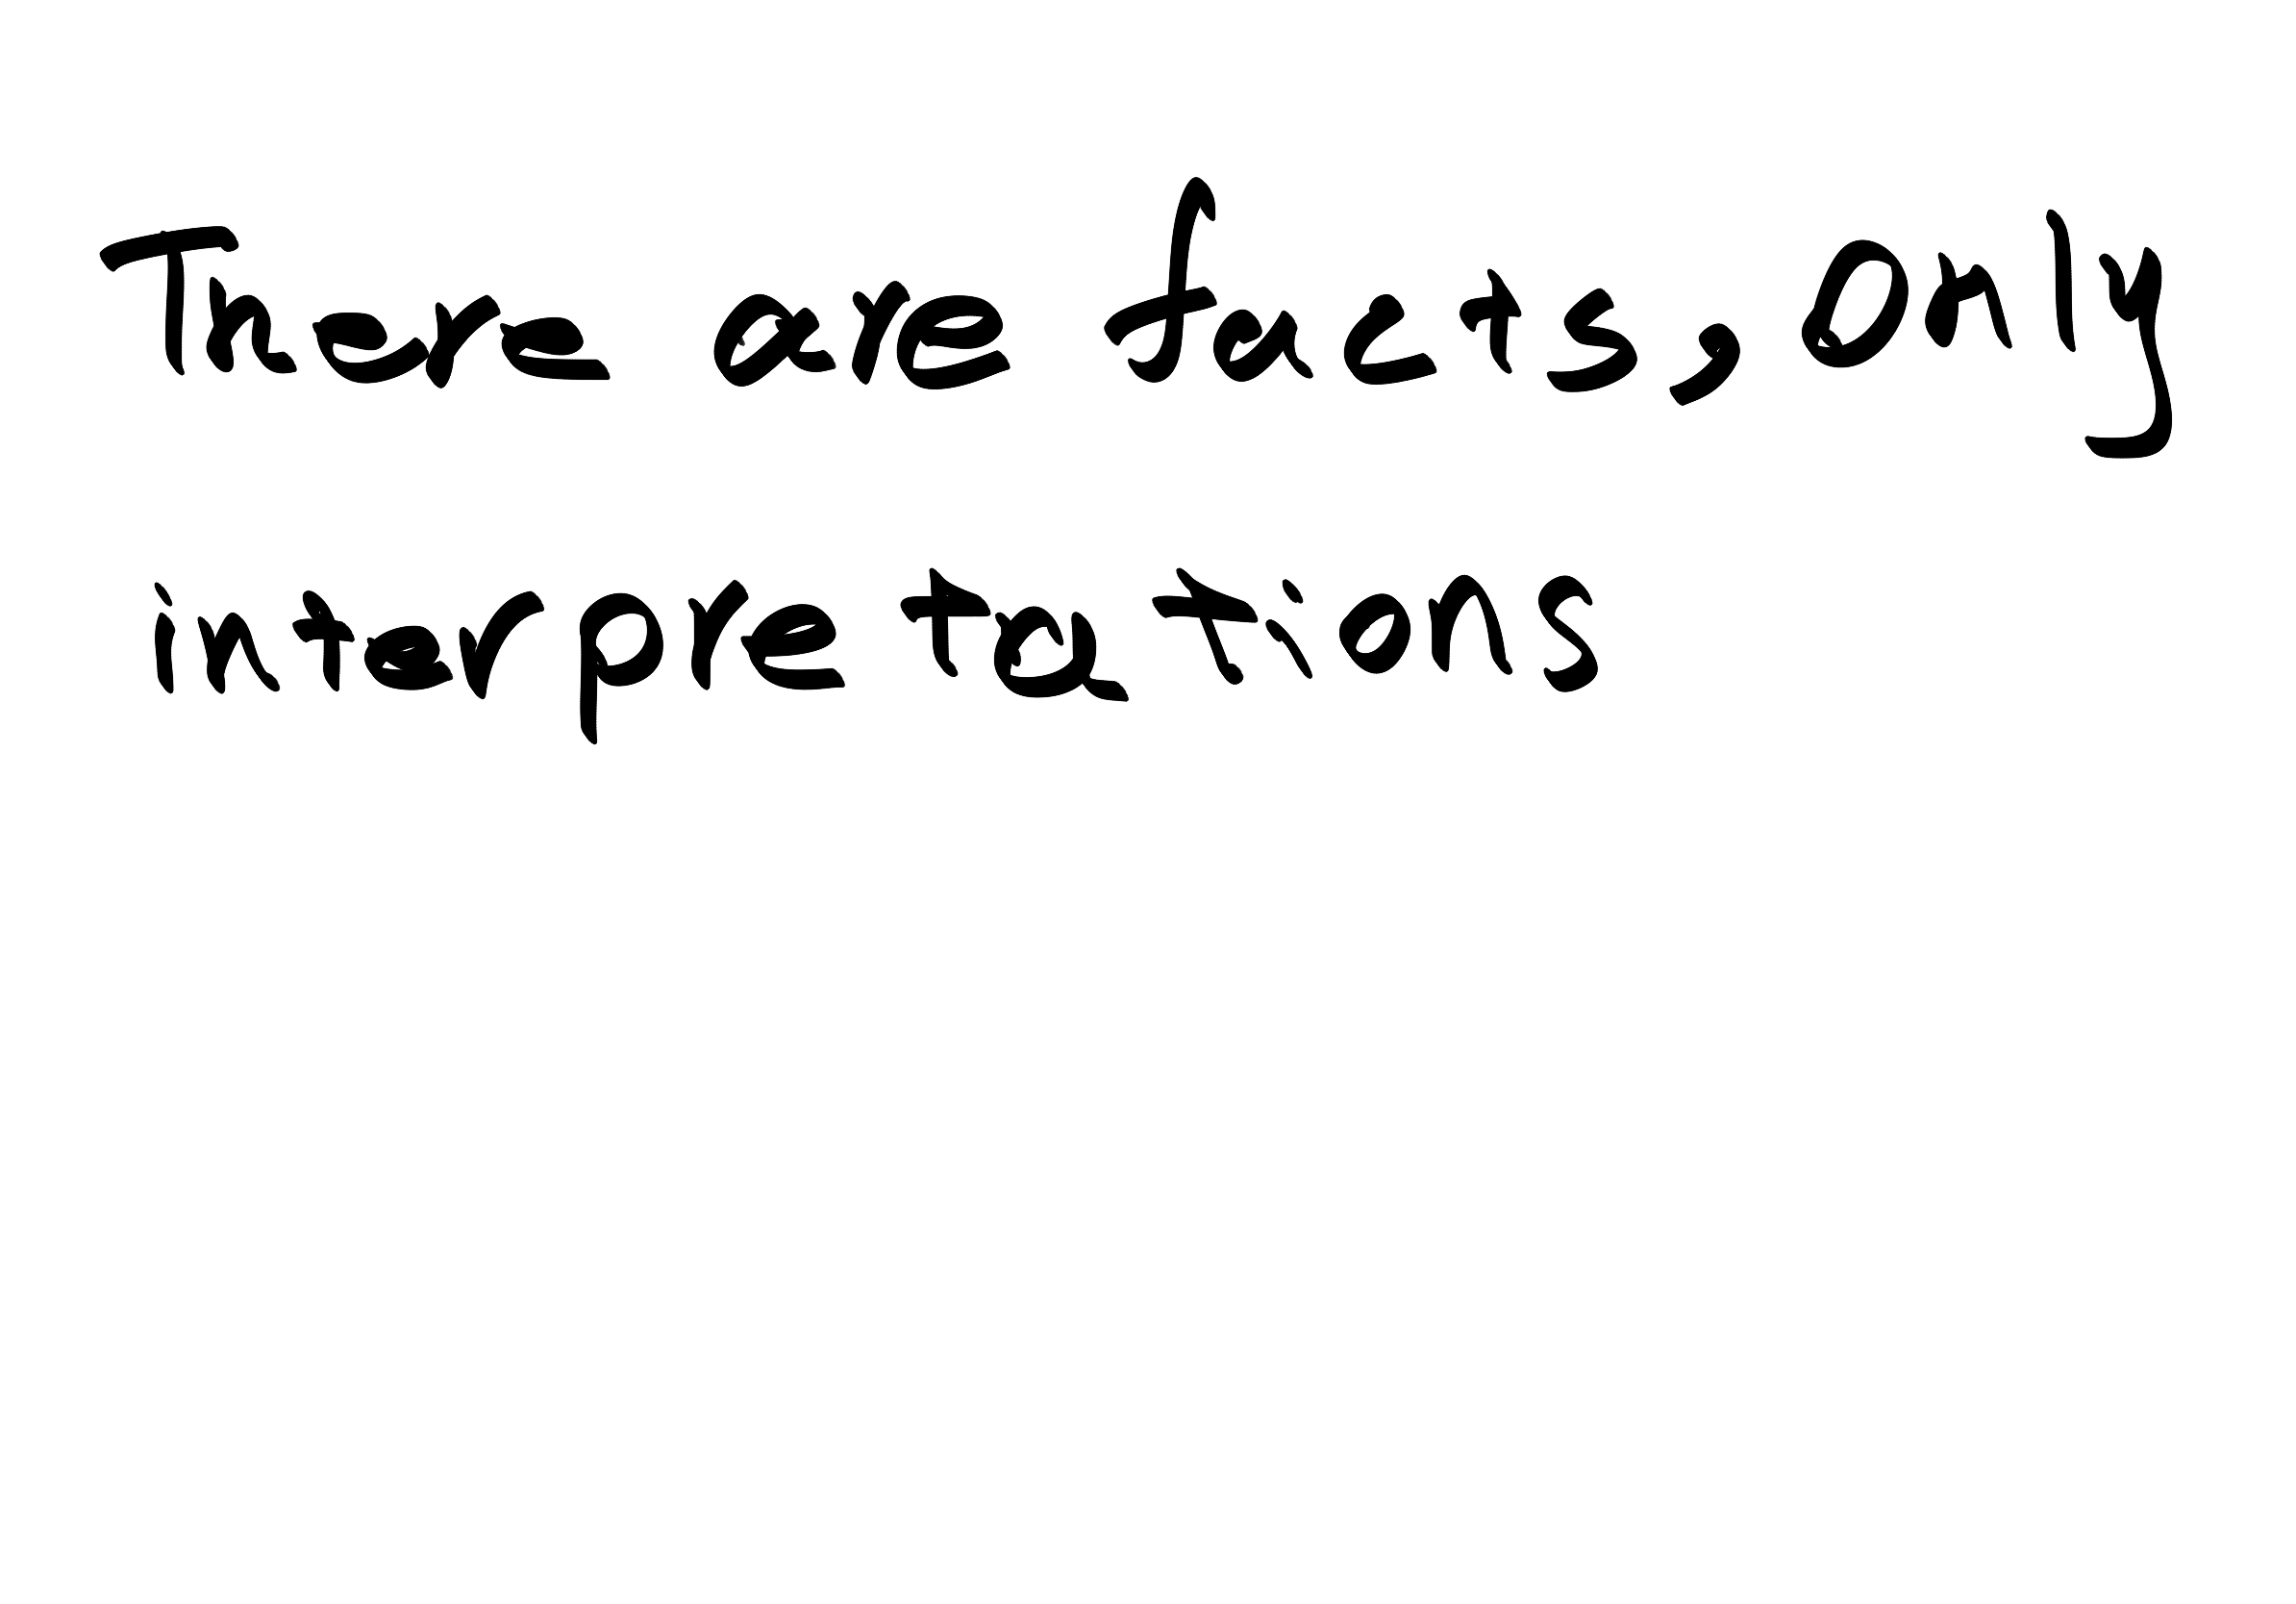 There are facts, only
interpretations